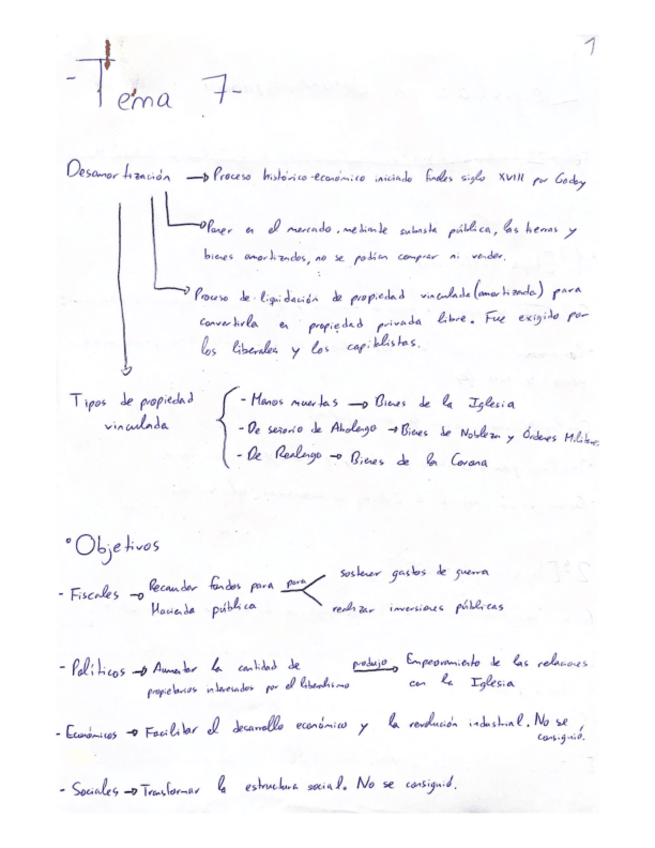 1
- Tema 7-
Desamortización → Proceso histórico-económico iniciado finales siglo XVIII por Godoy
→ Poner en el mercado, mediante subasta pública, las tierras y
bienes amortizados, no se podían comprar ni vender.
→ Proceso de liquidación de propiedad vinculada (amortizada) para
convertirla en propiedad privada libre. Fue exigido por
los liberales y los capitalistas.
Tipos de propiedad
vinculada
- Manos muertas → Bienes de la Iglesia
- De señorío de Abolengo → Bienes de Nobleza y Órdenes Militares
- De Realengo → Bienes de la Corona
° Objetivos
- Fiscales → Recaudar fondos para
Hacienda pública
para
sostener gastos de guerra
realizar inversiones públicas
- Políticos → Aumentar la cantidad de
propietarios interesados por el liberalismo
produjo
Empeoramiento de las relaciones
con la Iglesia
- Económicos → Facilitar el desarrollo económico y la revolución industrial. No se
consiguió.
- Sociales → Transformar la estructura social. No se consiguió.